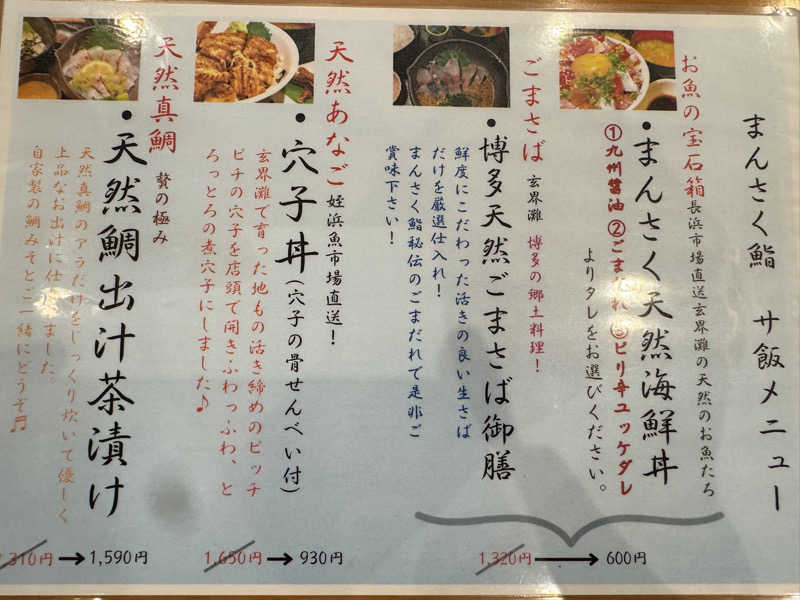 まんさく鮨　サ飯メニュー
お魚の宝石箱
長浜市場直送玄界灘の天然のお魚たち
・まんさく天然海鮮丼
①九州醤油 ②ごまだれ ③ピリ辛ユッケダレ
よりタレをお選びください。
ごまさば
玄界灘 博多の郷土料理！
・博多天然ごまさば御膳
鮮度にこだわった活きの良い生さば
だけを厳選仕入れ！
まんさく鮨秘伝のごまだれで是非ご
賞味下さい！
1,320円→600円
天然あなご
姪浜魚市場直送！
・穴子丼(穴子の骨せんべい付)
玄界灘で育った地もの活き締めのピッチ
ピチの穴子を店頭で開きふわっふわ、と
ろっとろの煮穴子にしました♪
1,650円→930円
天然真鯛
贅の極み
・天然鯛出汁茶漬け
天然真鯛のアラだけをじっくり炊いて優しく
上品なお出汁に仕 ました。
自家製の鯛みそとご一緒にどうぞ♬
1,310円→1,590円